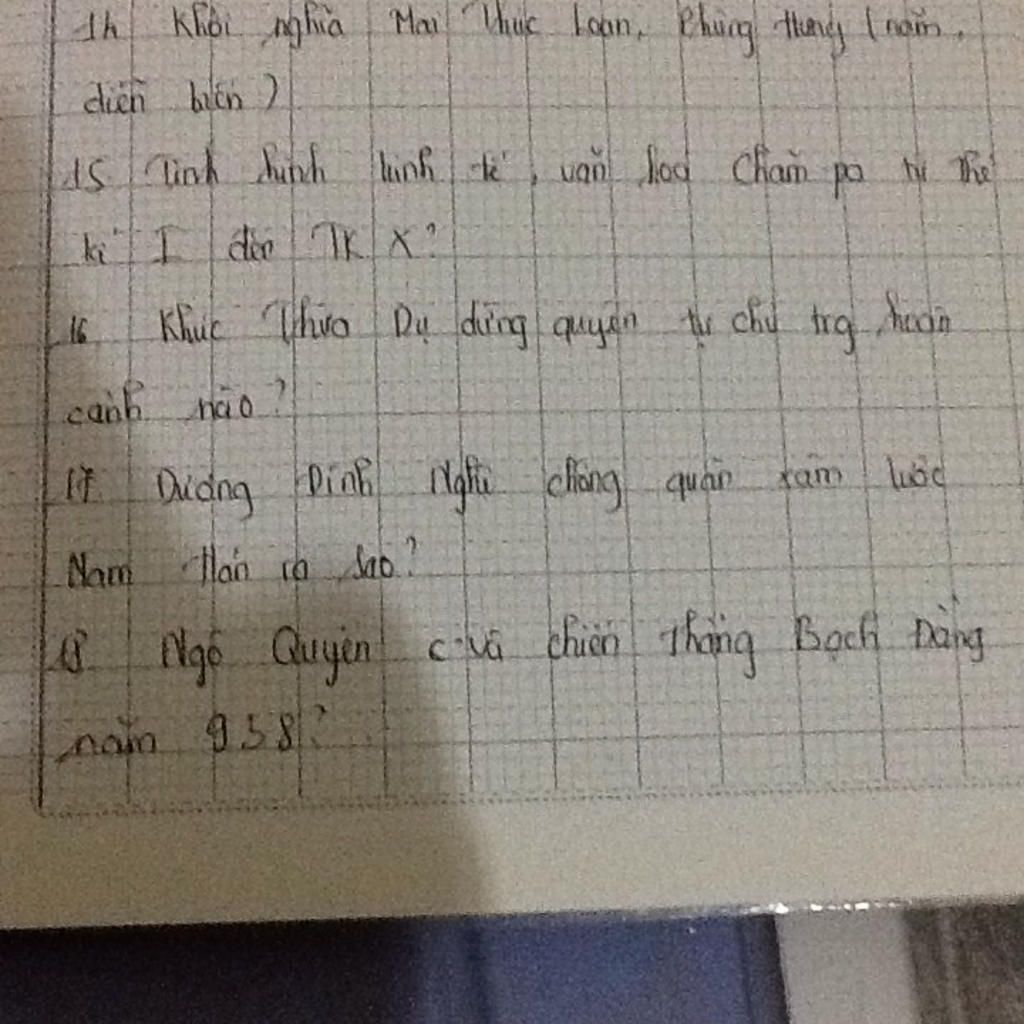 14 Khởi nghĩa Mai Thúc Loan, Phùng Hưng (năm,
diễn biến)
15 Tình hình kinh tế, văn hoá Chăm pa từ thế
kỉ I đến TK X?
16 Khúc Thừa Dụ dựng quyền tự chủ trg hoàn
cảnh nào?
17 Dương Đình Nghệ chống quân xâm lược
Nam Hán ra sao?
18 Ngô Quyền và chiến thắng Bạch Đằng
năm 938?